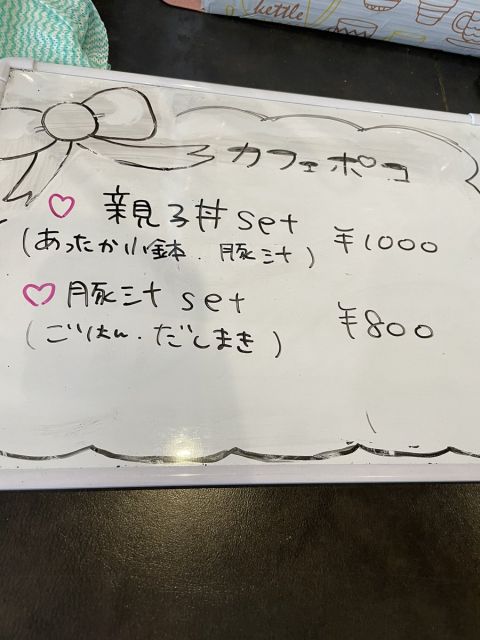 kettle
カフェポコ
親子丼set ¥1000
(あったか小鉢.豚汁)
豚汁set ¥800
(ごはん.だしまき)